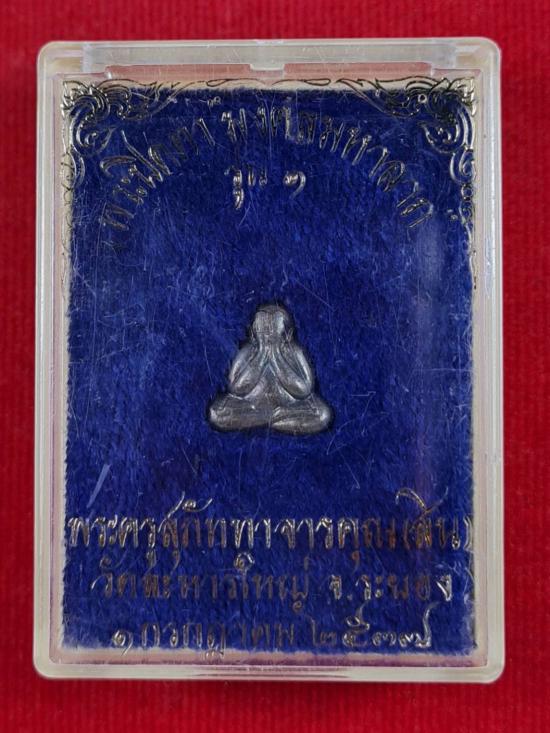 พระปิดตา มงคลมหาลาภ
รุ่น ๑
พระครูสุภัททาจารคุณ (สิน)
วัดละหารใหญ่ จ.ระยอง
๑ กรกฎาคม ๒๕๓๗